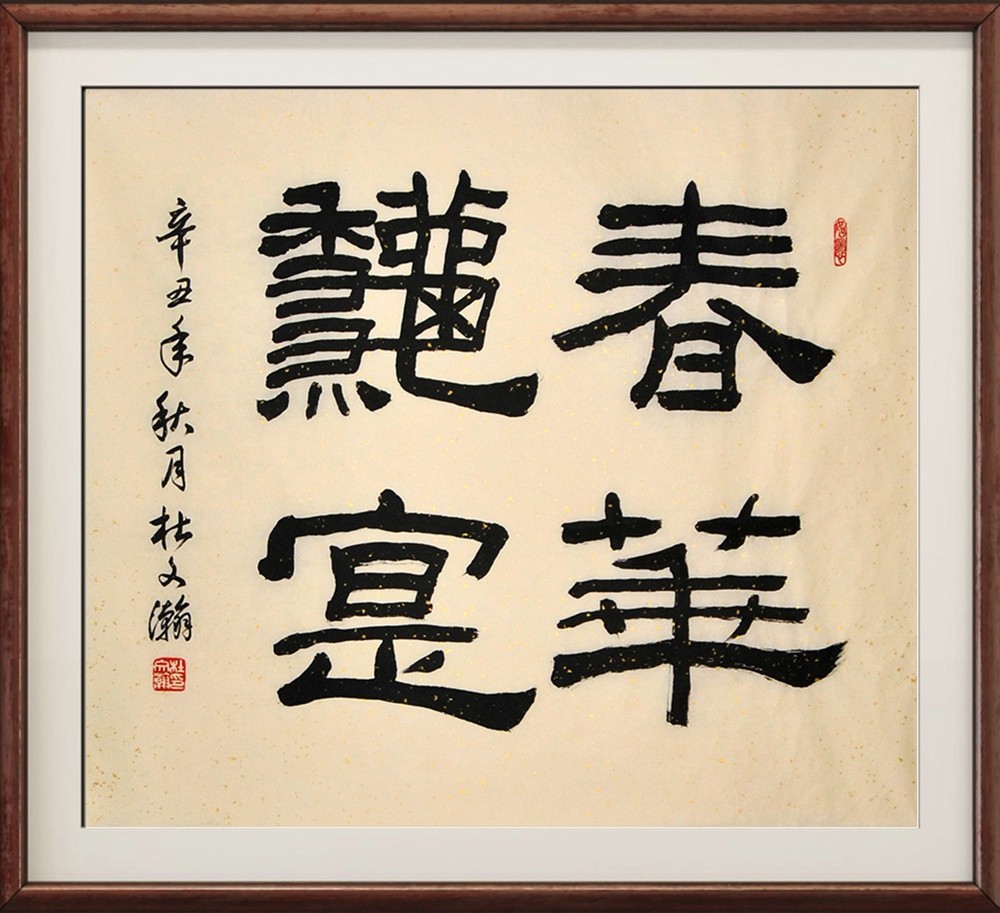 春華
龝寔
辛丑年秋月杜文瀚